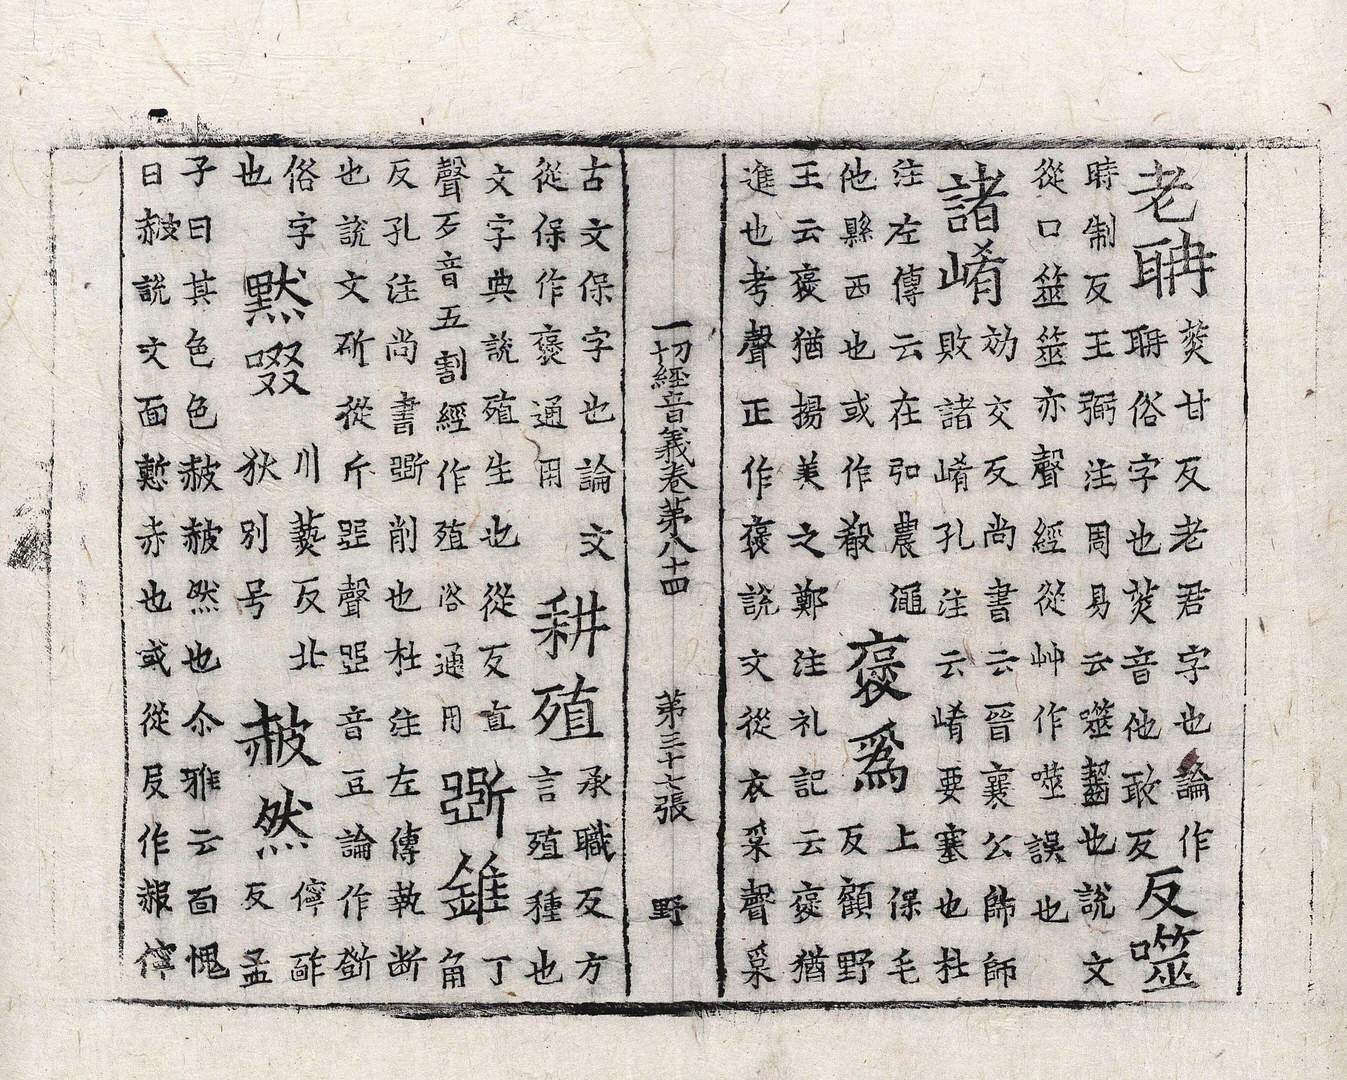 老聃
菼甘反老君字也論作
聃俗字也菼音他敢反
反噬
時制反王弼注周易云噬齧也說文
從口筮筮亦聲經從艸作噬誤也
諸崤
効交反尚書云晉襄公帥師
敗諸崤孔注云崤要塞也杜
注左傳云在弘農澠
他縣西也或作殽
褒爲
上保毛
反顧野
王云褒猶揚美之鄭注礼記云褒猶
進也考聲正作褒說文從衣采聲采
一切經音義卷第八十四 第三十七張 野
古文保字也論文
從保作褒通用
耕殖
承職反方
言殖種也
文字典說殖生也從歹直
聲歹音五割經作殖俗通用
斲錐
丁
角
反孔注尚書斲削也杜注左傳執斲
也說文斫從斤㖈聲㖈音豆論作斵
俗字
也
默啜
川爇反北
狄別号
赧然
儜䤃
反孟
子曰其色色赧赧然也尒雅云面愧
曰赧說文面慙赤也或從𠬝作赧儜